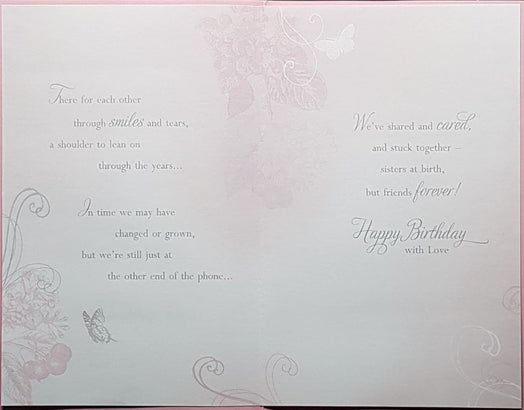 There for each other
through smiles and tears,
a shoulder to lean on
through the years...
In time we may have
changed or grown,
but we're still just at
the other end of the phone...
We've shared and cared,
and stuck together –
sisters at birth,
but friends forever!
Happy Birthday
with Love